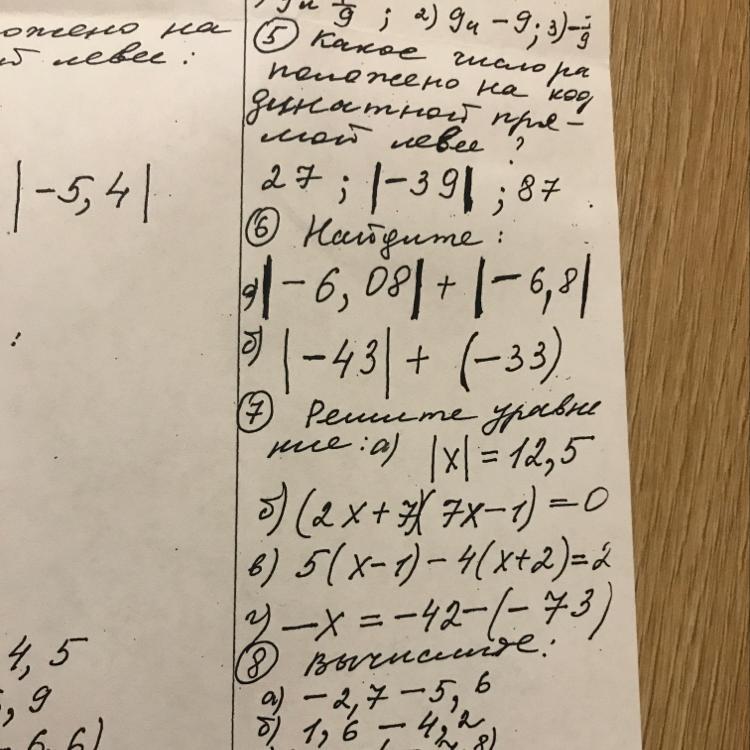 ожено на
левее:
|-5,4|
4,5
9
; 2) 9 и -9; 3)
⑤ Какое число ра
положено на коор
динатной пря-
мой левее?
27; |-39|; 87.
⑥ Найдите:
а) |-6,08| + |-6,8|
б) |-43| + (-33)
⑦ Решите уравне
ние: а) |x| = 12,5
б) (2x+7)(7x-1) = 0
в) 5(x-1) - 4(x+2) = 2
г) -x = -42-(-73)
⑧ Вычислите:
а) -2,7 - 5,6
б) 1,6 - 4,2